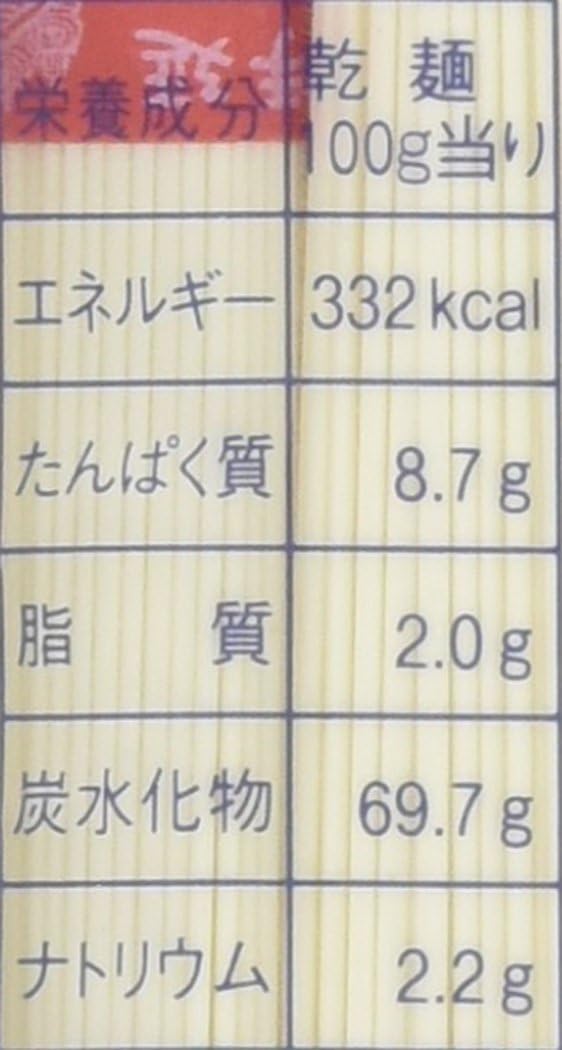 栄養成分
乾麺
100g当り
エネルギー 332kcal
たんぱく質 8.7g
脂質 2.0g
炭水化物 69.7g
ナトリウム 2.2g